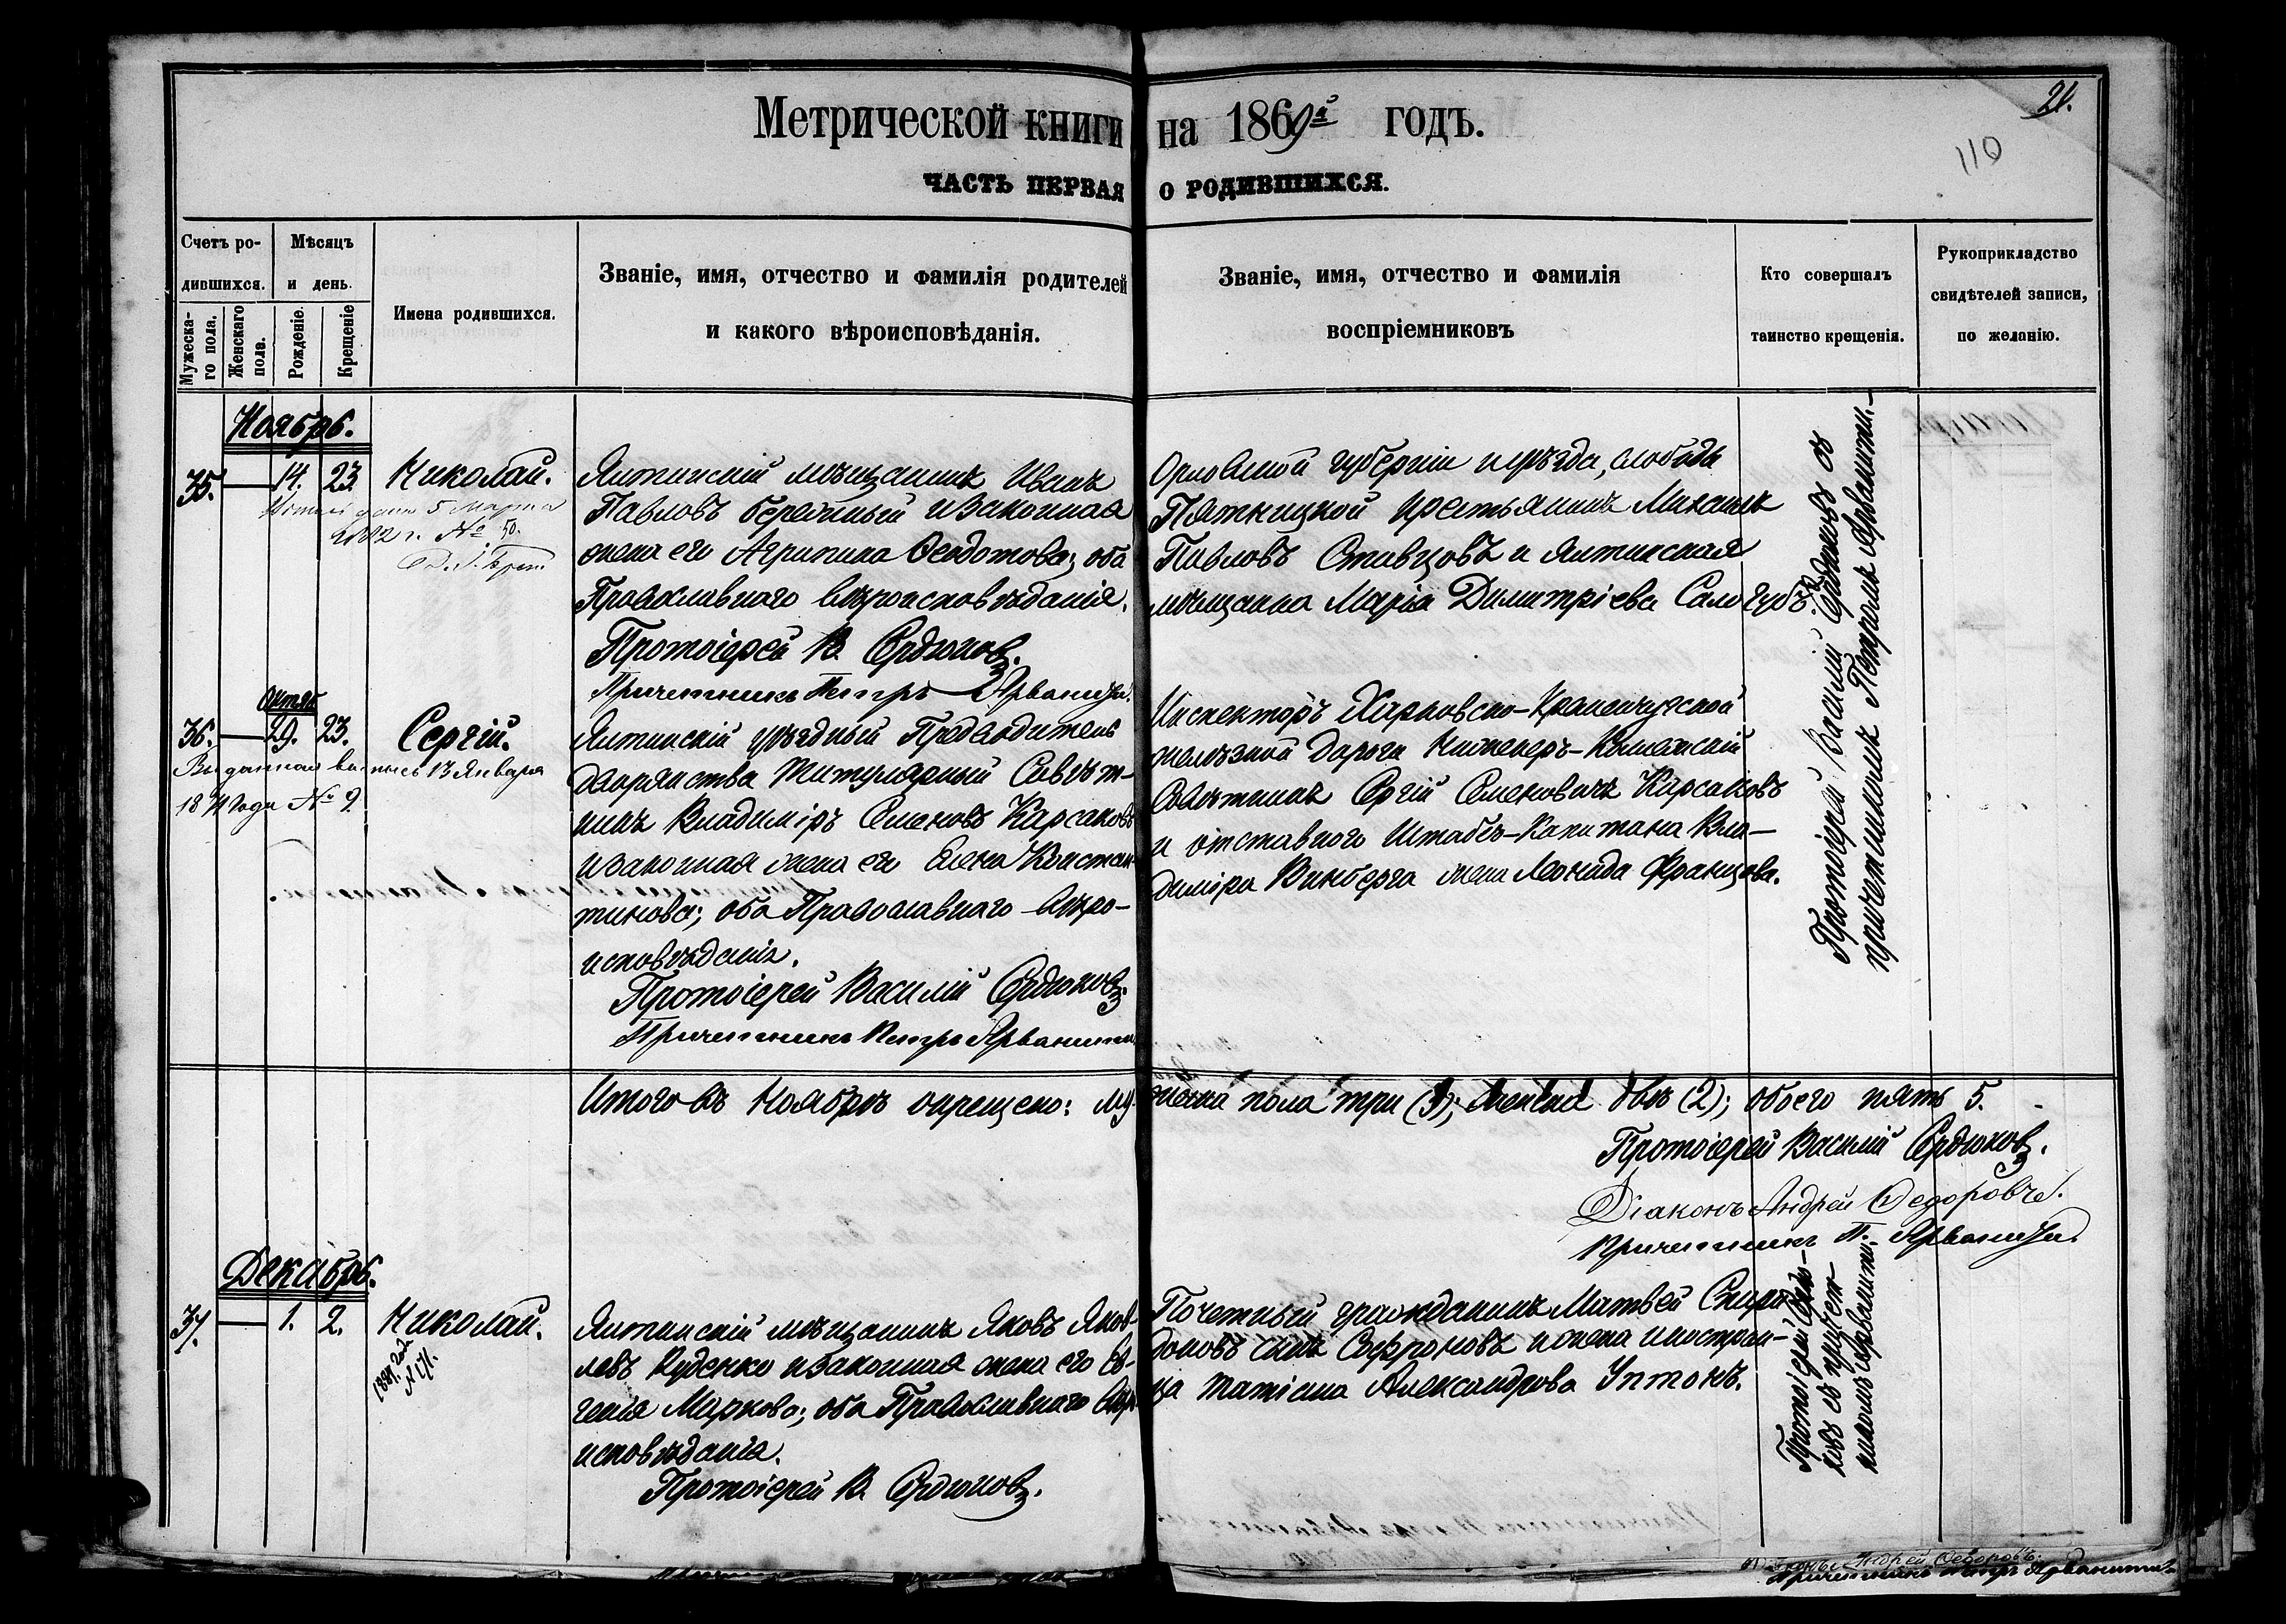 21.
110
Метрической книги на 1869й годъ.
ЧАСТЬ ПЕРВАЯ О РОДИВШИХСЯ.
Счетъ ро-
дившихся.
Мѣсяцъ
и день.
Мужеска-
го пола.
Женскаго
пола.
Рожденіе.
Крещеніе
Имена родившихся.
Званіе, имя, отчество и фамилія родителей
и какого вѣроисповѣданія.
Званіе, имя, отчество и фамилія
воспріемниковъ
Кто совершалъ
таинство крещенія.
Рукоприкладство
свидѣтелей записи,
по желанію.
Ноябрь.
35. — 14. 23. Николай.
дана 5 Марта
1882 г. № 50.
Ялтинскій мѣщанинъ Иванъ
Павловъ Бережный и законная
жена его Агрипина Ѳеодотова; оба
Православнаго вѣроисповѣданія.
Протоіерей В. Сердюковъ.
Причетникъ Петръ Арванити.
Орловской губерніи и уѣзда, слободы
Пятницкой крестьянинъ Михаилъ
Павловъ Стивцовъ и Ялтинская
мѣщанка Марія Димитріева Сологубъ.
Протоіерей Василій Сердюковъ съ
причетникомъ Петромъ Арванити.—
Октяб
36. — 29. 23. Сергій.
Выданная выпись 13 Января
1871 года № 2
Ялтинскій уѣздный Предводитель
дворянства Титулярный Совѣт-
никъ Владиміръ Семеновъ Карсаковъ
и законная жена его Елена Констан-
тинова; оба Православнаго вѣро-
исповѣданія.
Протоіерей Василій Сердюковъ.
Причетникъ Петръ Арванити
Инспекторъ Харьковско-Кременчугской
желѣзной дороги Инженеръ-Коллежскій
Совѣтникъ Сергій Семеновичъ Карсаковъ
и отставнаго Штабсъ-Капитана Вла-
диміра Винберга жена Леонида Францова.
Итого въ Ноябрѣ окрещено: мужеска пола три (3); женска двѣ (2); обоего пять 5.
Протоіерей Василій Сердюковъ.
Діаконъ Андрей Ѳедоровъ.
Причетникъ П. Арванити.
Декабрь.
37. — 1. 2. Николай.
1884 года
Ялтинскій мѣщанинъ Яковъ Яков-
левъ Куденко и законная жена его Ев-
генія Маркова; оба Православнаго вѣро-
исповѣданія.
Протоіерей В. Сердюковъ.
Почетный гражданинъ Матвей Спири-
доновъ сынъ Софроновъ и жена иностран-
ца Татіана Александрова Уптонъ.
Протоіерей Сердю-
ковъ съ причет-
никомъ Арванити.
Діаконъ Андрей Ѳедоровъ.
Причетникъ Петръ Арванити